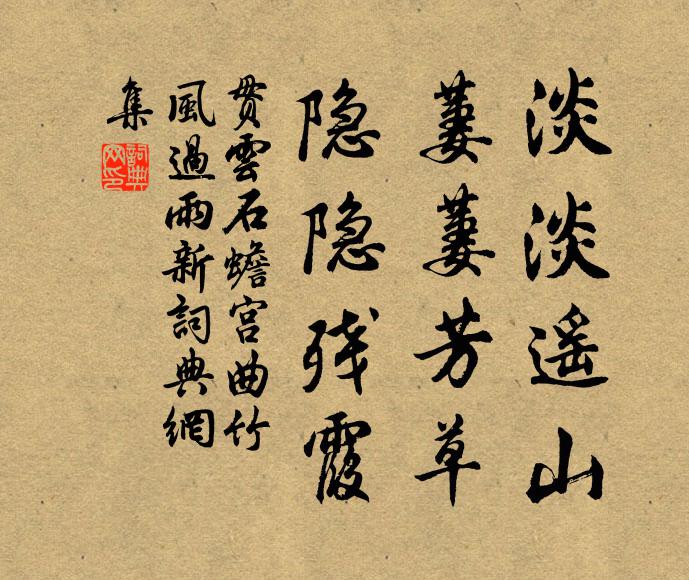 淡淡遥山
萋萋芳草
隐隐残霞
贯雲石蟾宫曲竹
風過雨新詞典網
集
詞典網印